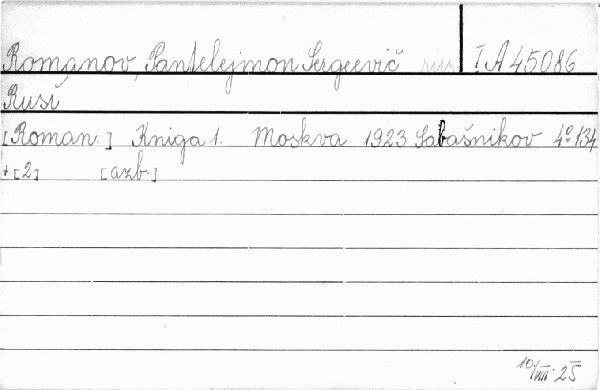 Romanov, Pantelejmon Sergeevič rus I A 45086
Rusí
[Roman.] Kniga 1. Moskva 1923 Sabašnikov 4° 134
+[2] [azb.]
10/VIII 25